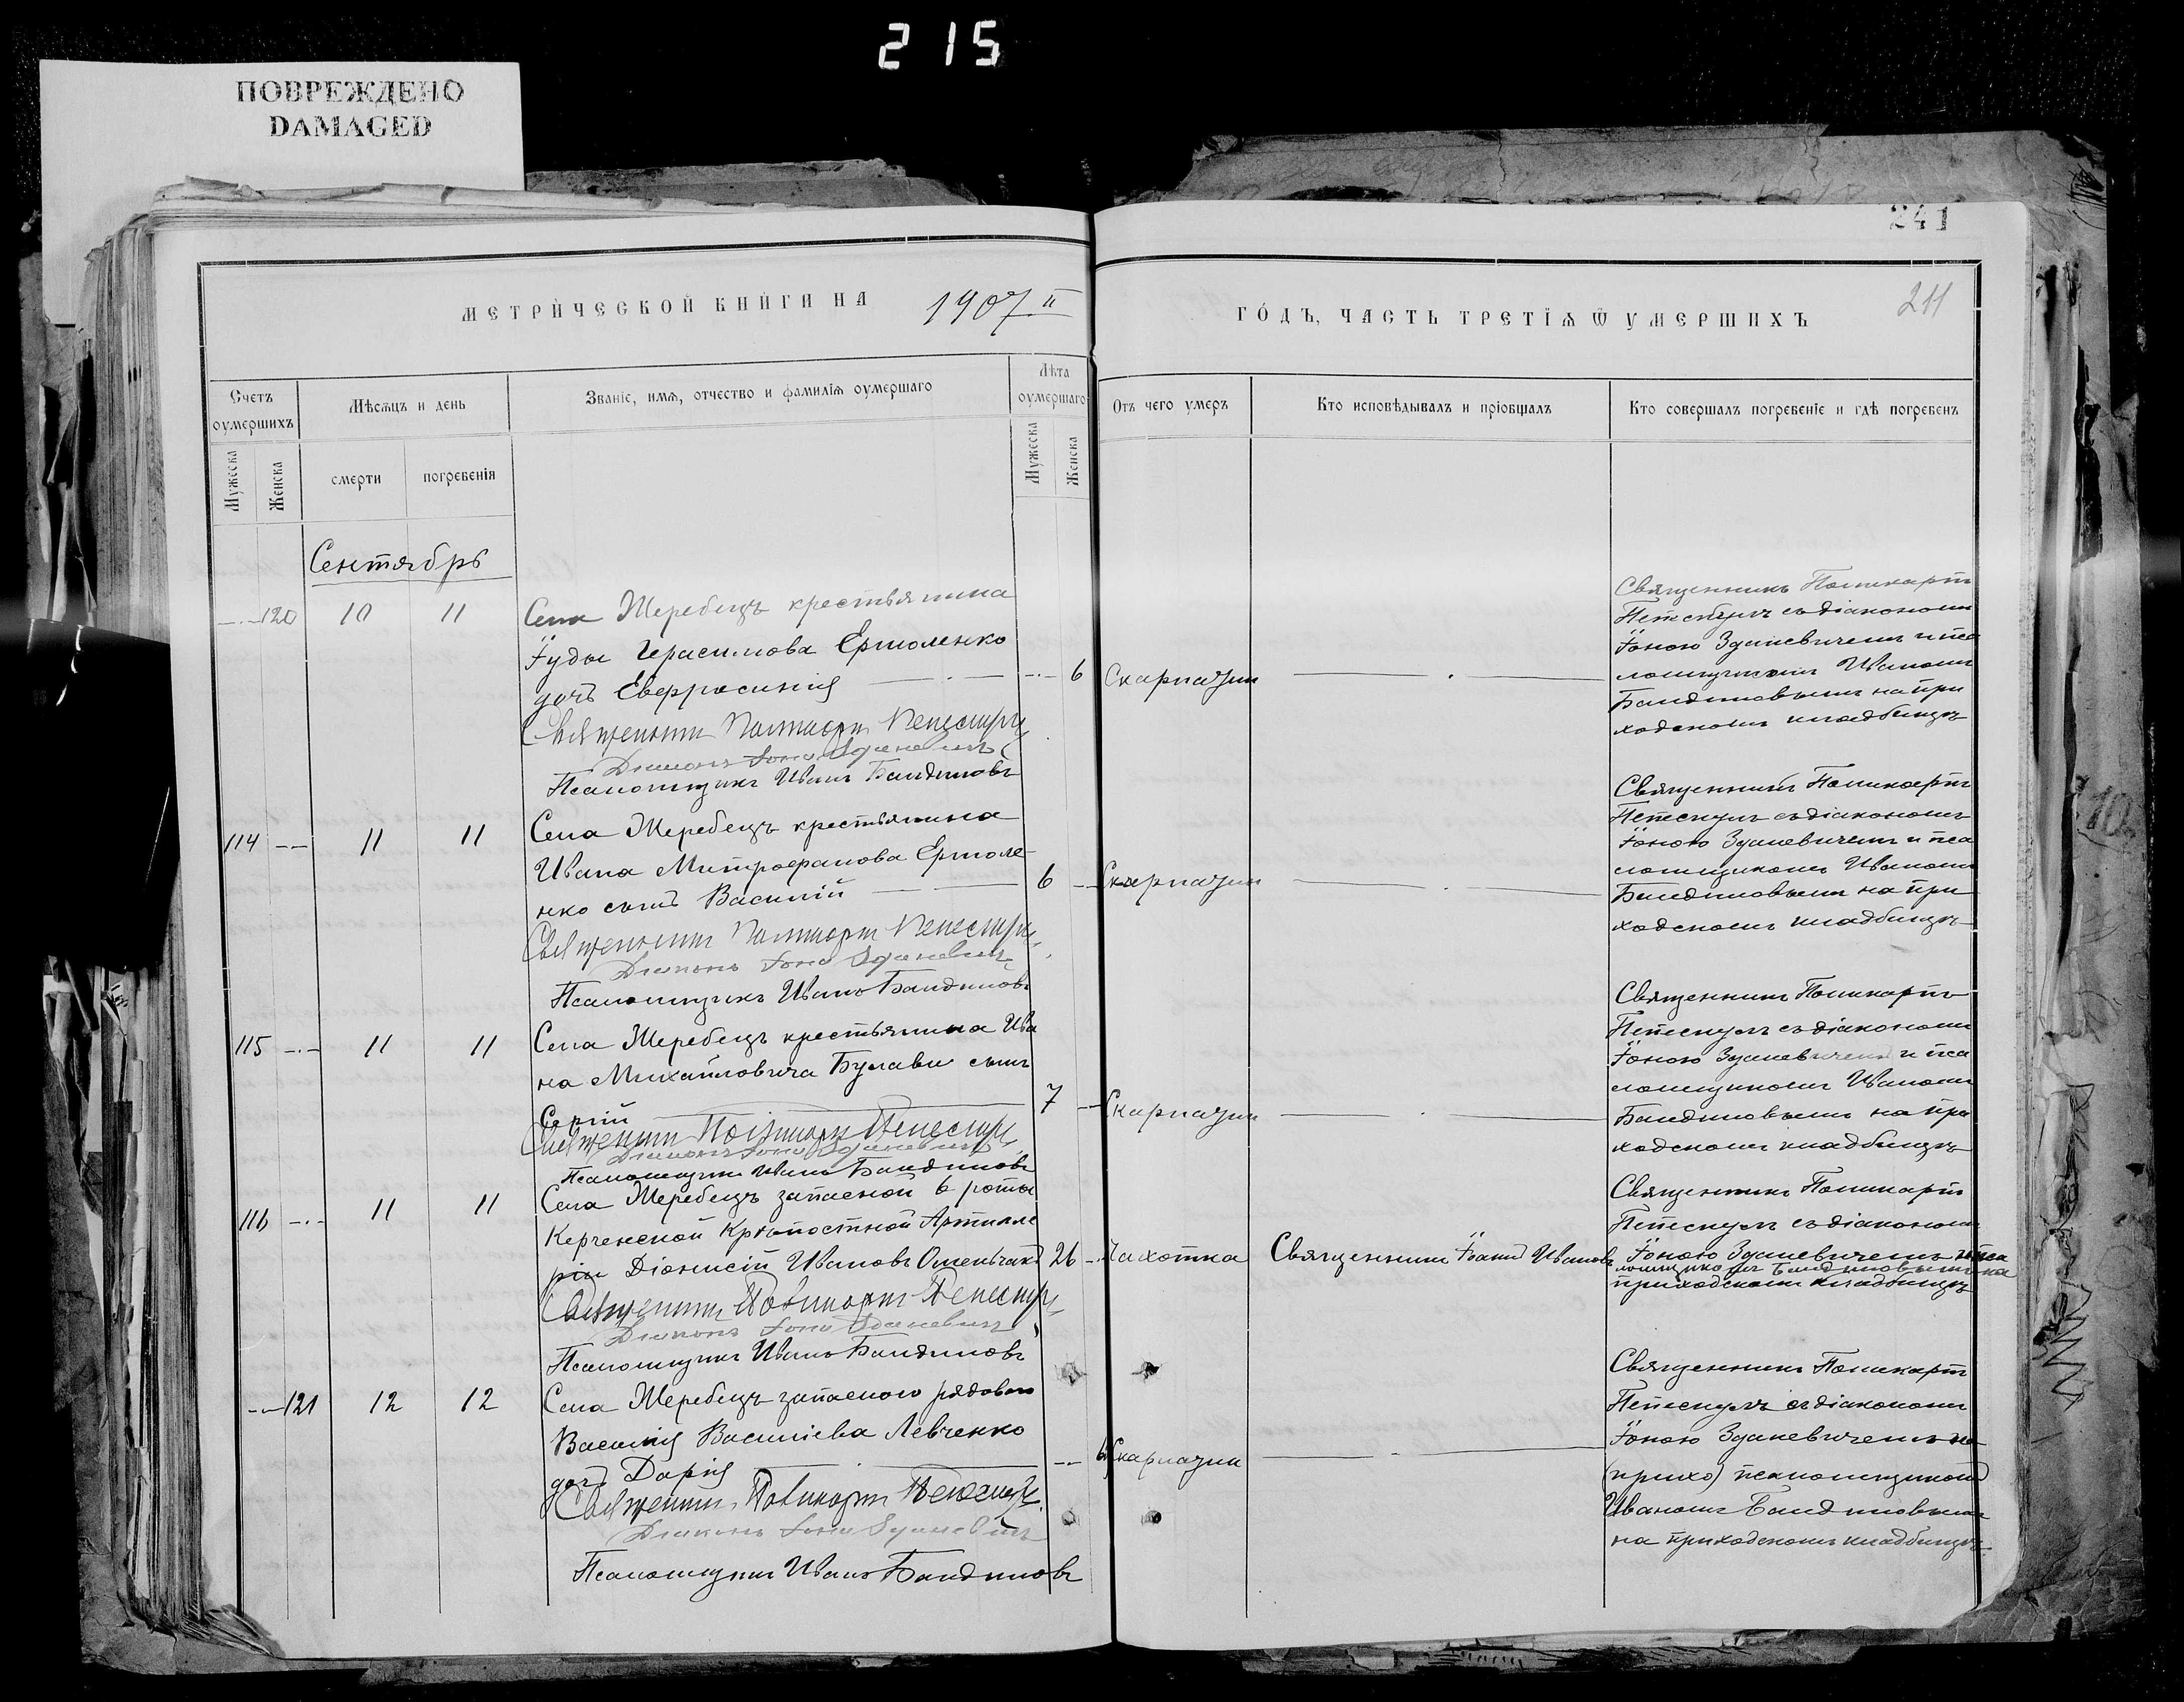 215
ПОВРЕЖДЕНО
DAMAGED
241
МЕТРИ́ЧЕСКОЙ КНИ́ГИ НА 1907.й
ГО́ДЪ, ЧАСТЬ ТРЕТІѦ Ѿ УМЕРШИХЪ
211
Счетъ оумершихъ
Мужеска
Женска
Мѣсѧцъ и день
смерти
погребенія
Званіе, имѧ, отчество и фамиліѧ оумершаго
Лѣта оумершаго
Мужеска
Женска
Отъ чего умеръ
Кто исповѣдывалъ и пріобщалъ
Кто совершалъ погребеніе и гдѣ погребенъ
Сентябрь
120 10 11
Села Жеребецъ крестьянина
Іуды Герасимова Ермоленко
дочь Евфросинія
6 Скарлатин
Священникъ
Діаконъ Іона Зданевичъ
Псаломщикъ Иванъ Бандиловъ
Священникъ Поликарпъ
съ діакономъ
Іоною Зданевичемъ и пса
ломщикомъ Иваномъ
Бандиловымъ на при
ходскомъ кладбищѣ
114 11 11
Села Жеребецъ крестьянина
Ивана Митрофанова Ермоле
нко сынъ Василій
6 Скарлатин
Священникъ
Діаконъ Іона Зданевичъ
Псаломщикъ Иванъ Бандиловъ
Священникъ Поликарпъ
съ діакономъ
Іоною Зданевичемъ и пса
ломщикомъ Иваномъ
Бандиловымъ на при
ходскомъ кладбищѣ
115 11 11
Села Жеребецъ крестьянина Ива
на Михайловича Булавы сынъ
Сергій
7 Скарлатин
Священникъ
Діаконъ Іона Зданевичъ
Псаломщикъ Иванъ Бандиловъ
Священникъ Поликарпъ
съ діакономъ
Іоною Зданевичемъ и пса
ломщикомъ Иваномъ
Бандиловымъ на при
ходскомъ кладбищѣ
116 11 11
Села Жеребецъ запасной 6 роты
Керченской Крѣпостной Артилле
ріи Діонисій Ивановъ
26 Чахотка
Священникъ Іоаннъ Ивановъ
Священникъ
Діаконъ Іона Зданевичъ
Псаломщикъ Иванъ Бандиловъ
Священникъ Поликарпъ
съ діакономъ
Іоною Зданевичемъ и пса
ломщикомъ Бандиловымъ на
приходскомъ кладбищѣ
121 12 12
Села Жеребецъ запасного рядового
Василія Василіева Левченко
дочь Дарія
6 Скарлатин
Священникъ
Діаконъ Іона Зданевичъ
Псаломщикъ Иванъ Бандиловъ
Священникъ Поликарпъ
съ діакономъ
Іоною Зданевичемъ на
(прихо) псаломщикомъ
Иваномъ Бандиловымъ
на приходскомъ кладбищѣ